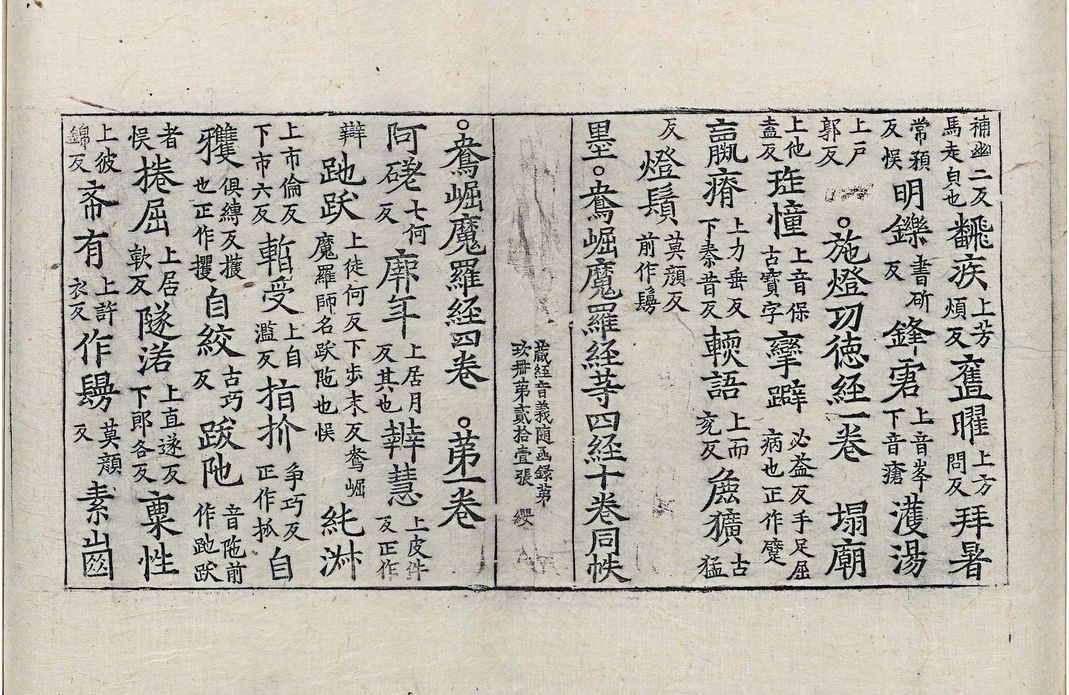 補幽二反馬走皃也飜㾮上芳煩反𦾔曜上方問反拜暑
常𩔰反悮明鑠書斫反鋒𩂣上音峯下音瘡濩湯
上戶郭反 ○施燈功徳経一卷 塌廟
上他盍反珤憧上音保古寳字攣躃必益反手足屈病也正作躄
羸瘠上力垂反下秦昔反輭語上而兖反麁獷古猛
反燈鬘莫顔反前作鬘
墨○鴦崛魔羅経䓁四経十卷同帙
藏経音義随函録第玖冊第貳拾壹張 纓
○鴦崛魔羅経四卷 ○苐一卷
阿磋七何反㡿年上居月反其也辯慧上皮件反正作
辯 跎跋上徒何反下步末反鴦崛魔羅師名跋陁也悮純淋
上市倫反下市六反暫受上自濫反拍抓爭巧反正作抓自
玃俱縛反攫也正作攫自絞古巧反跋陁音陁前作跎跋
者悮捲屈上居軟反隧落上直遂反下郎各反稟性
上彼錦反斋有上許衣反作鬘莫顔反素齒